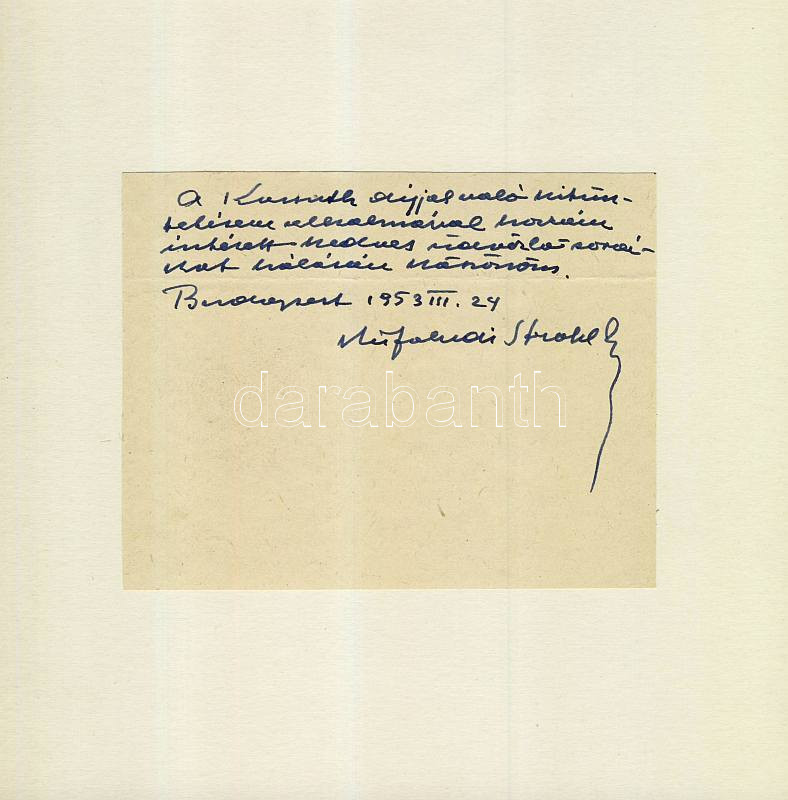 A Kossuth díjjal való kitün-
tetésem alkalmával hozzám
intézett kedves üdvözlő sorai-
kat hálásan köszönöm.
Budapest 1953 III. 24
Kisfaludi Strobl
darabanth